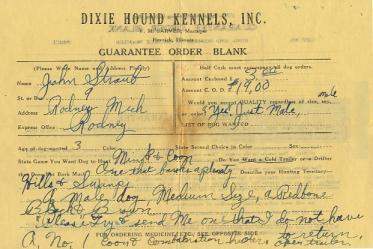 DIXIE HOUND KENNELS, INC.
Manager
Herrick, Illinois
GUARANTEE ORDER BLANK
(Please Write Name and Address Plainly)
Half Cash must accompany all dog orders.
Name John Straub
Amount Enclosed $
Amount C. O. D. $19.00
St. or Box 9
Would you accept QUALITY regardless of size, sex, or color? Yes, Just Male, male
Address Rodney Mich
LIST OF DOG WANTED
Express Office Rodney
Age of dog wanted 3 Color State Second Choice in Color Sex
State Game You Want Dog to Hunt Mink & Coon Do You Want a Cold Trailer or a Drifter
Bark Much One that barks a plenty Describe Your Hunting Territory
Hills & Swamps
male dog Medium Size, a Redbone
Please send Me one that I do not have
to return,
FOR ORDERING MEDICINE, ETC., SEE OPPOSITE SIDE
A No. Coon Combination open trailer